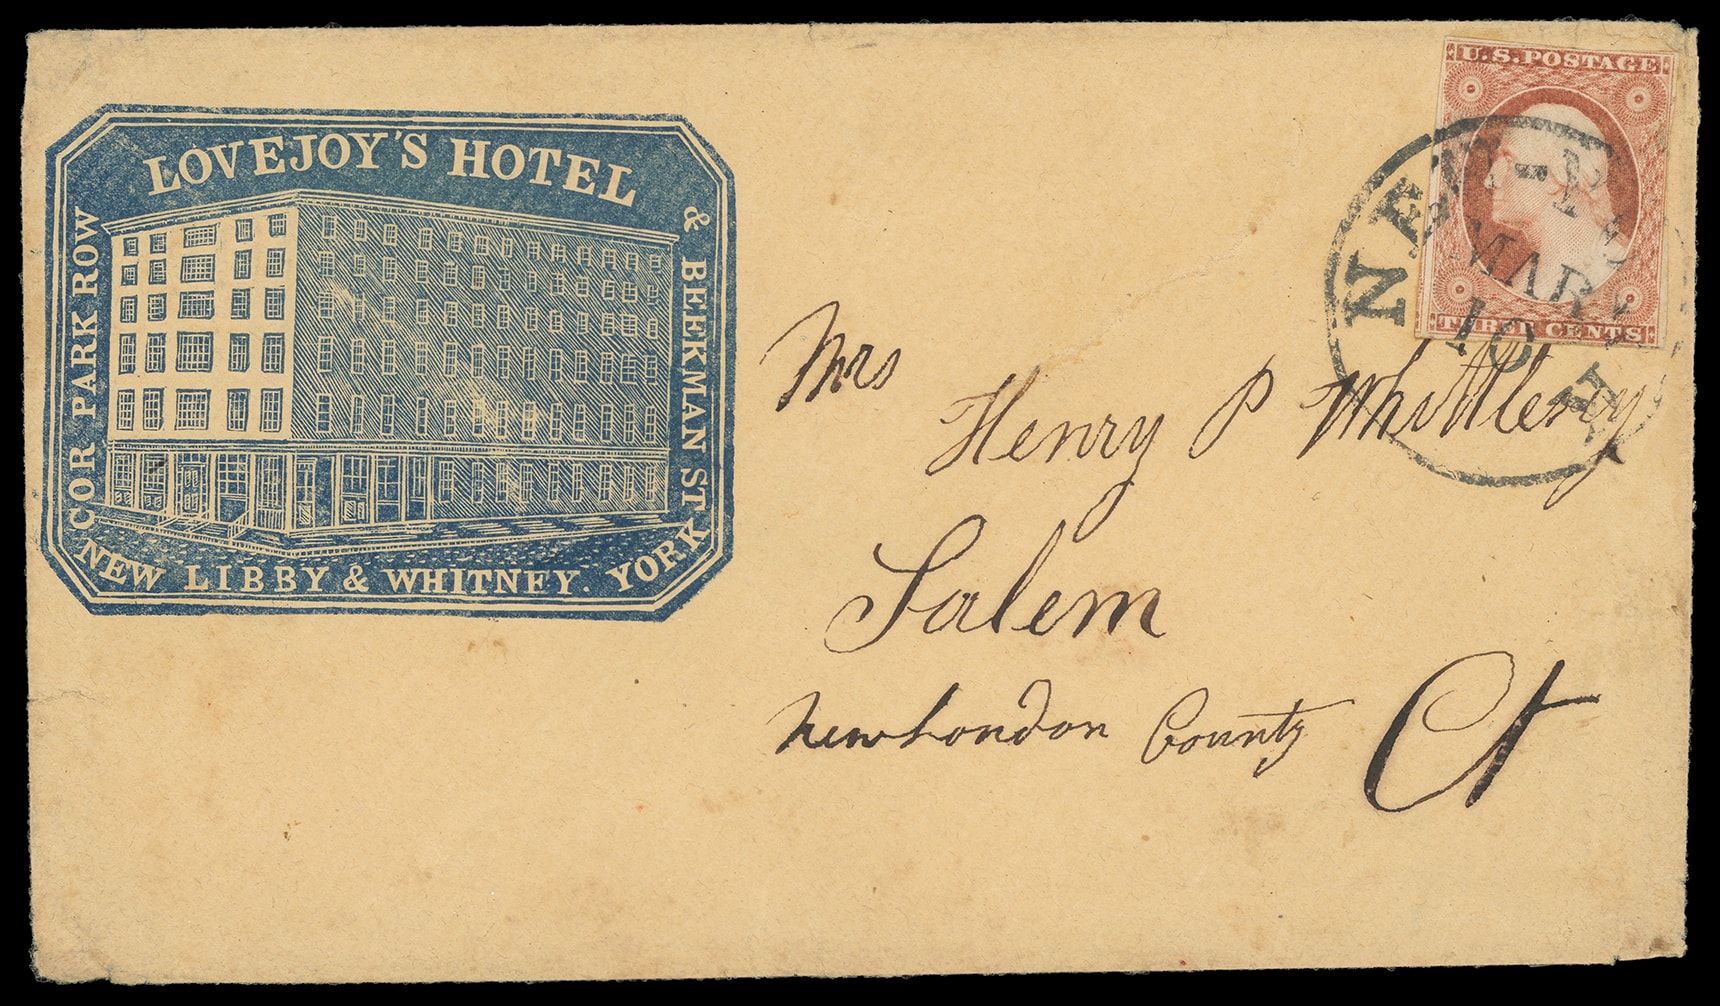 LOVEJOY'S HOTEL
COR PARK ROW
& BEEKMAN ST
NEW YORK
LIBBY & WHITNEY.
U.S. POSTAGE
THREE CENTS
NEW-YORK
MAR
10
Mrs
Henry P Whittlesey
Salem
New London County Ct